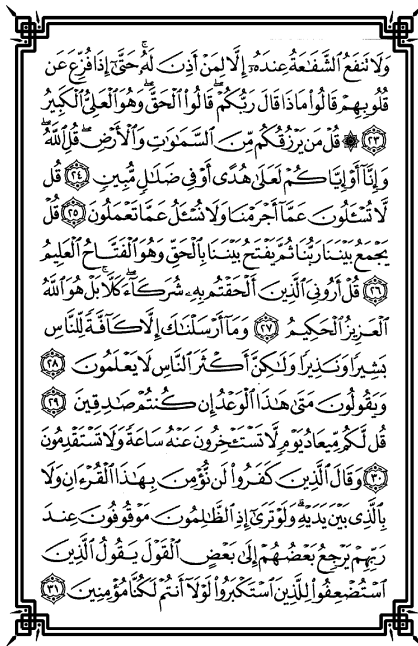 وَلَا تَنفَعُ الشَّفَاعَةُ عِندَهُ إِلَّا لِمَنْ أَذِنَ لَهُ حَتَّىٰ إِذَا فُزِّعَ عَن
قُلُوبِهِمْ قَالُوا مَاذَا قَالَ رَبُّكُمْ قَالُوا الْحَقَّ وَهُوَ الْعَلِيُّ الْكَبِيرُ
﴿٢٣﴾ ۞ قُلْ مَن يَرْزُقُكُم مِّنَ السَّمَاوَاتِ وَالْأَرْضِ قُلِ اللَّهُ
وَإِنَّا أَوْ إِيَّاكُمْ لَعَلَىٰ هُدًى أَوْ فِي ضَلَالٍ مُّبِينٍ ﴿٢٤﴾ قُل
لَّا تُسْـَٔلُونَ عَمَّا أَجْرَمْنَا وَلَا نُسْـَٔلُ عَمَّا تَعْمَلُونَ ﴿٢٥﴾ قُلْ
يَجْمَعُ بَيْنَنَا رَبُّنَا ثُمَّ يَفْتَحُ بَيْنَنَا بِالْحَقِّ وَهُوَ الْفَتَّاحُ الْعَلِيمُ
﴿٢٦﴾ قُلْ أَرُونِيَ الَّذِينَ أَلْحَقْتُم بِهِ شُرَكَاءَ كَلَّا بَلْ هُوَ اللَّهُ
الْعَزِيزُ الْحَكِيمُ ﴿٢٧﴾ وَمَا أَرْسَلْنَاكَ إِلَّا كَافَّةً لِّلنَّاسِ
بَشِيرًا وَنَذِيرًا وَلَٰكِنَّ أَكْثَرَ النَّاسِ لَا يَعْلَمُونَ ﴿٢٨﴾
وَيَقُولُونَ مَتَىٰ هَٰذَا الْوَعْدُ إِن كُنتُمْ صَادِقِينَ ﴿٢٩﴾
قُل لَّكُم مِّيعَادُ يَوْمٍ لَّا تَسْتَـْٔخِرُونَ عَنْهُ سَاعَةً وَلَا تَسْتَقْدِمُونَ
﴿٣٠﴾ وَقَالَ الَّذِينَ كَفَرُوا لَن نُّؤْمِنَ بِهَٰذَا الْقُرْءَانِ وَلَا
بِالَّذِي بَيْنَ يَدَيْهِ وَلَوْ تَرَىٰ إِذِ الظَّالِمُونَ مَوْقُوفُونَ عِندَ
رَبِّهِمْ يَرْجِعُ بَعْضُهُمْ إِلَىٰ بَعْضٍ الْقَوْلَ يَقُولُ الَّذِينَ
اسْتُضْعِفُوا لِلَّذِينَ اسْتَكْبَرُوا لَوْلَا أَنتُمْ لَكُنَّا مُؤْمِنِينَ ﴿٣١﴾